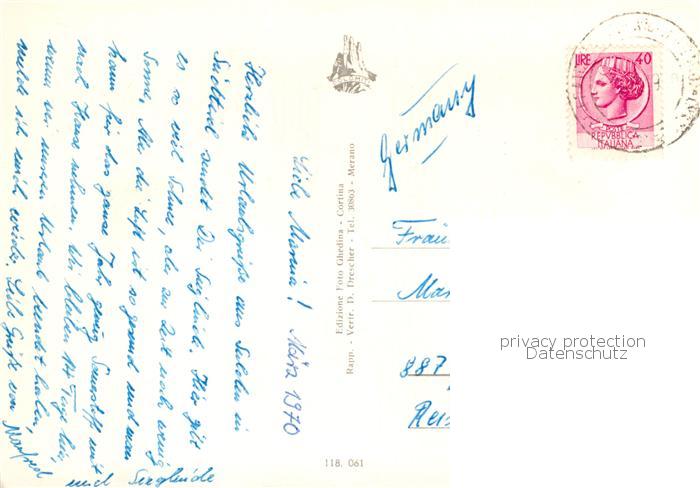 Liebe Maria! März 1970
Herzliche Urlaubsgrüße aus Sulden in
Südtirol sendet Dir Sieglinde. Hier gibt
es so viel Schnee, aber zur Zeit noch wenig
Sonne. Aber die Luft ist so gesund und man
kann für das ganze Jahr genug Sauerstoff mit
nach Hause nehmen. Wir bleiben 14 Tage hier,
wenn wir unseren Urlaub beendet haben,
melde ich mich wieder. Liebe Grüße von Manfred
und Sieglinde
Edizione Foto Ghedina - Cortina
Rapp. - Vertr. D. Drescher - Tel. 30863 - Merano
118. 061
Germany
LIRE 40
POSTE
REPVBBLICA
ITALIANA
Fräu
Mar
887
Reis
privacy protection
Datenschutz